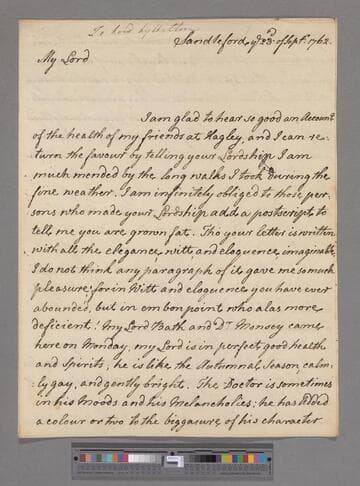 To Lord Lyttelton
Sandleford, ye 23d of Sept. 1762.
My Lord
I am glad to hear so good an Account
of the health of my friends at Hagley, and I can re-
turn the favour by telling your Lordship I am
much mended by the long walks I took during the
fine weather. I am infinitely obliged to those per-
sons who made your Lordship add a postscript to
tell me you are grown fat. Tho your letter is written
with all the elegance, witt, and eloquence imaginable,
I do not think any paragraph of it gave me so much
pleasure; for in Witt and eloquence you have ever
abounded, but in embonpoint who alas more
deficient! My Lord Bath and Dr. Monsey came
here on Monday, my Lord is in perfect good health
and Spirits, he is like the Autumnal season, calm-
ly gay, and gently bright. The Doctor is sometimes
in his Moods and his Melancholies; he has added
a colour or two to the biggasure of his character